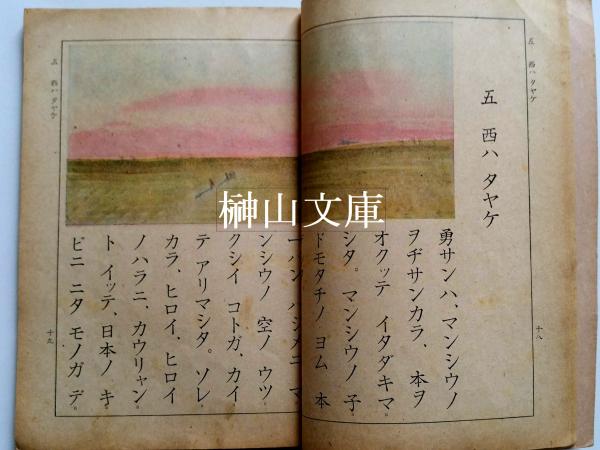 五 西ハタヤケ
五 西ハ タヤケ
勇サンハ、マンシウノ
ヲヂサンカラ、本ヲ
オクッテ イタダキマ
シタ。マンシウノ 子
ドモタチノ ヨム 本
十八
一バン ハジメニ マ
ンシウノ 空ノ ウツ
クシイ コトガ、カイ
テ アリマシタ。ソレ
カラ、ヒロイ、ヒロイ
ノハラニ、カウリャン
ト イッテ、日本ノ キ
ビニ ニタ モノガ デ
五 西ハタヤケ
十九
榊山文庫